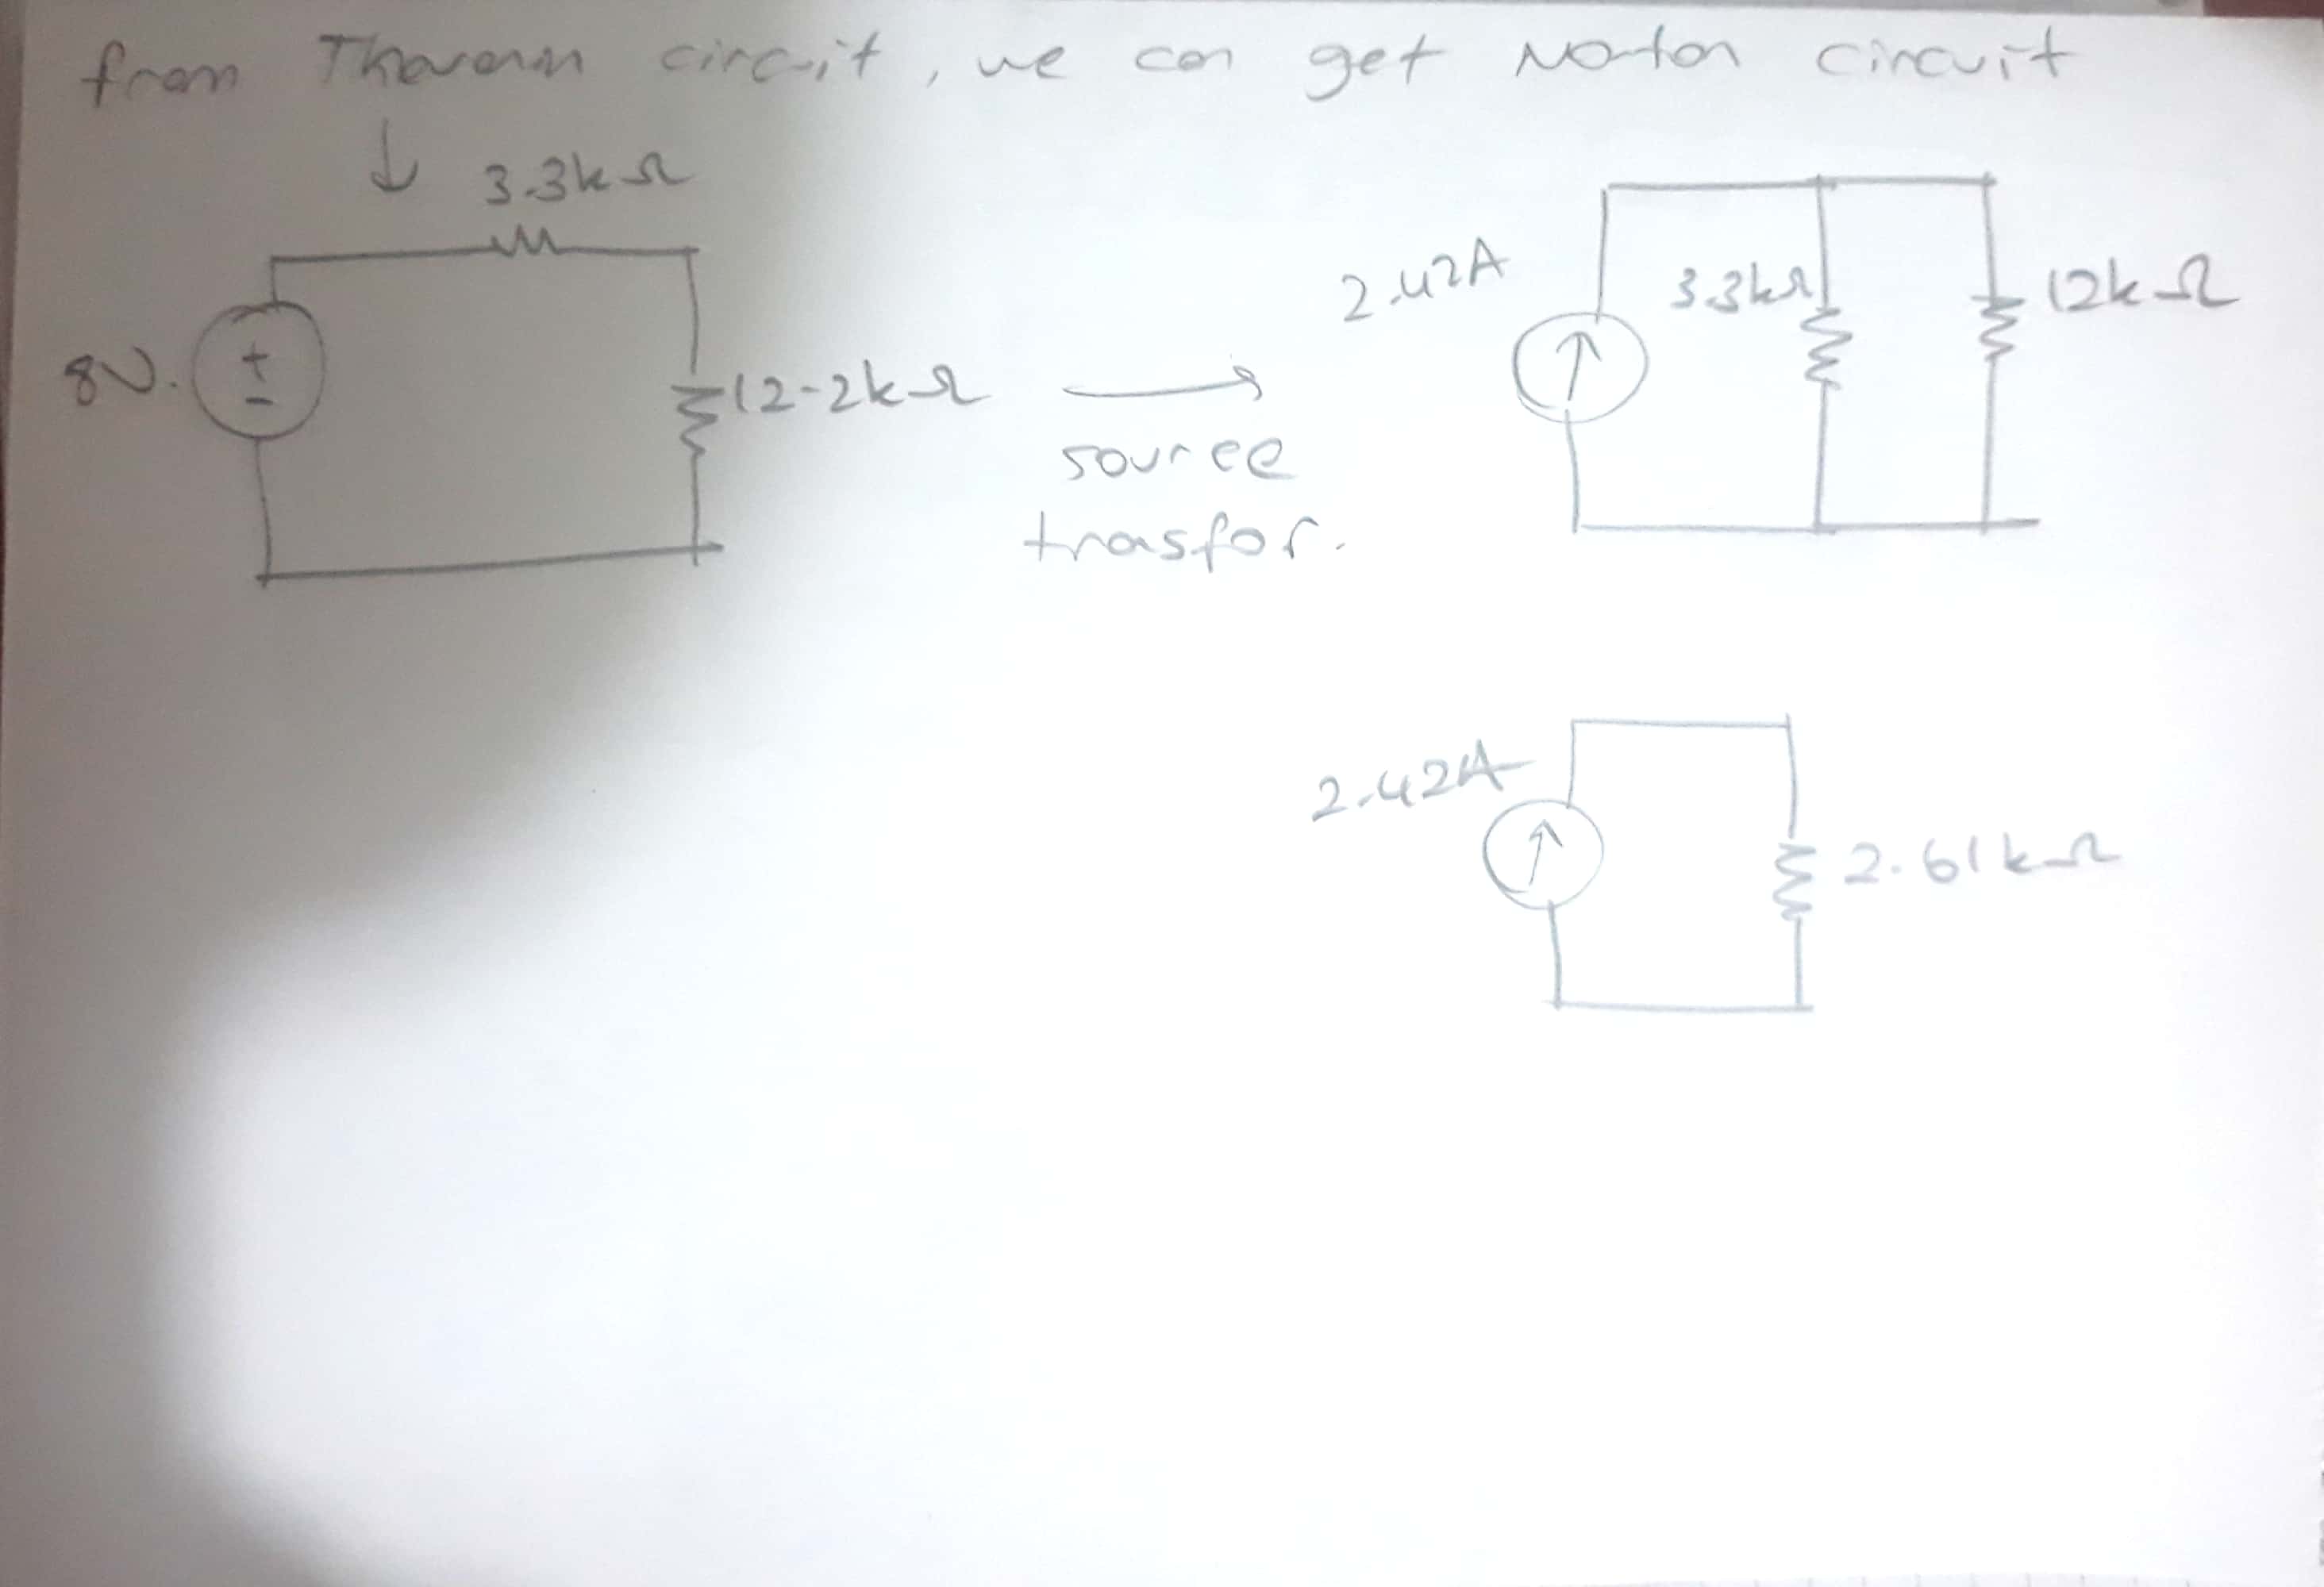 from Thevenin circuit, we can get Norton circuit
3.3kΩ
8V.
+
-
12-2kΩ
source
trasfor.
2.42A
3.3kΩ
12kΩ
2.42A
2.61kΩ